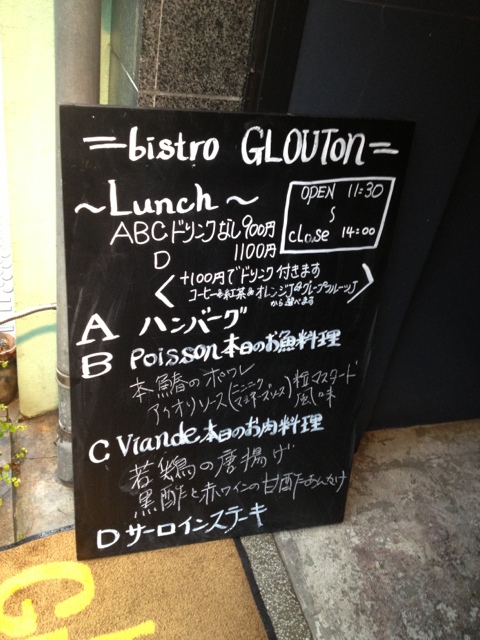 =bistro GLOUTON=
~Lunch~
OPEN 11:30
〜
close 14:00
ABCドリンクなし 900円
D 1100円
+100円でドリンク付きます
コーヒーor紅茶orオレンジJorグレープフルーツJ
から選べます
A ハンバーグ
B Poisson 本日のお魚料理
本鰆のポワレ
アイオリソース(ニンニクマヨネーズソース)粒マスタード風味
C Viande 本日のお肉料理
若鶏の唐揚げ
黒酢と赤ワインの甘酢あんかけ
D サーロインステーキ